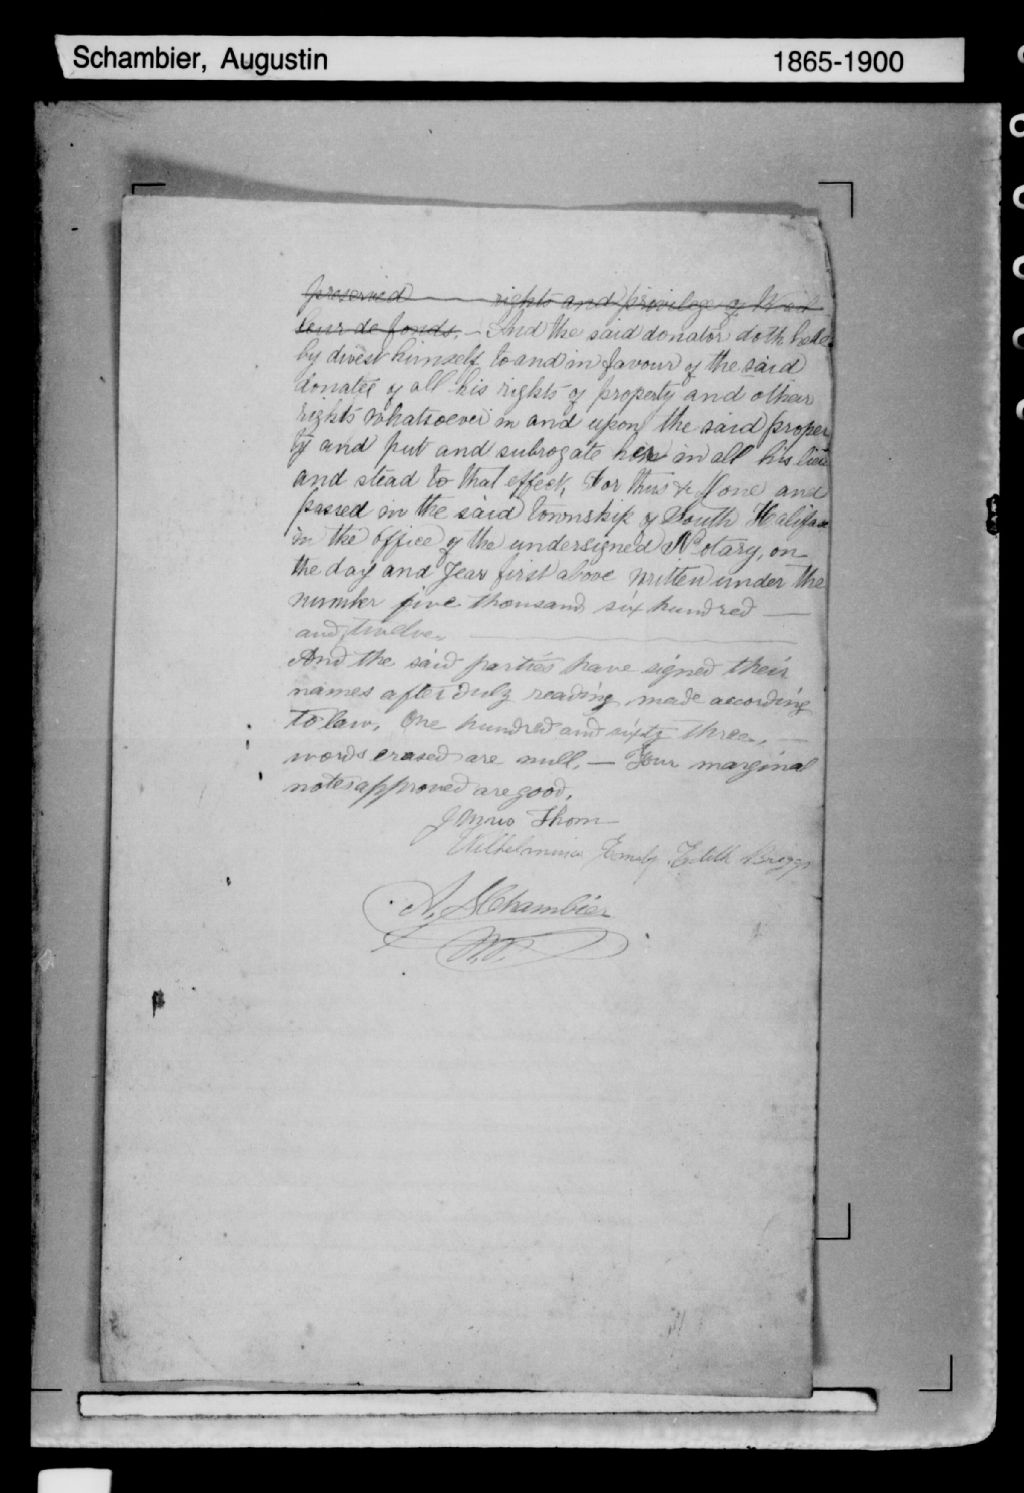 Schambier, Augustin 1865-1900
preserved rights and privilege of
leur de fonds. — And the said donator doth here
by divest himself to and in favour of the said
donatee of all his rights of property and other
rights whatsoever in and upon the said proper
ty and put and subrogate her in all his lieu
and stead to that effect, For thus & done and
passed in the said Township of South Halifax
in the office of the undersigned Notary, on
the day and year first above written under the
number five thousand six hundred —
and twelve. —
And the said parties have signed their
names after duly reading made according
to law, One hundred and sixty three, —
words erased are null. — Four marginal
notes approved are good.
Thom
Wilhelmina Emely Edith Briggs
A. SChambier
N.P.